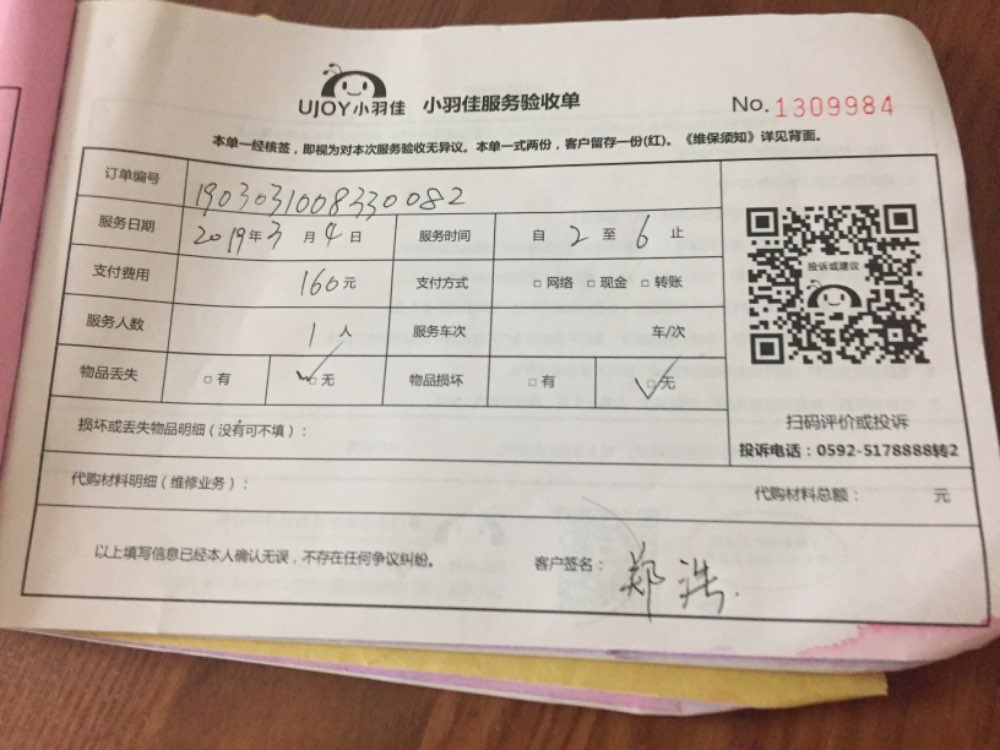 UJOY小羽佳 小羽佳服务验收单 No.1309984
本单一经核签，即视为对本次服务验收无异议。本单一式两份，客户留存一份(红)。《维保须知》详见背面。
订单编号 1903031008330082
服务日期 2019年3月4日 服务时间 自2至6止
支付费用 160元 支付方式 □网络 □现金 □转账
服务人数 1人 服务车次 车/次
物品丢失 □有 ☑无 物品损坏 □有 ☑无
投诉或建议
扫码评价或投诉
投诉电话：0592-5178888转2
损坏或丢失物品明细（没有可不填）：
代购材料明细（维修业务）： 代购材料总额： 元
以上填写信息已经本人确认无误，不存在任何争议纠纷。 客户签名：郑浩